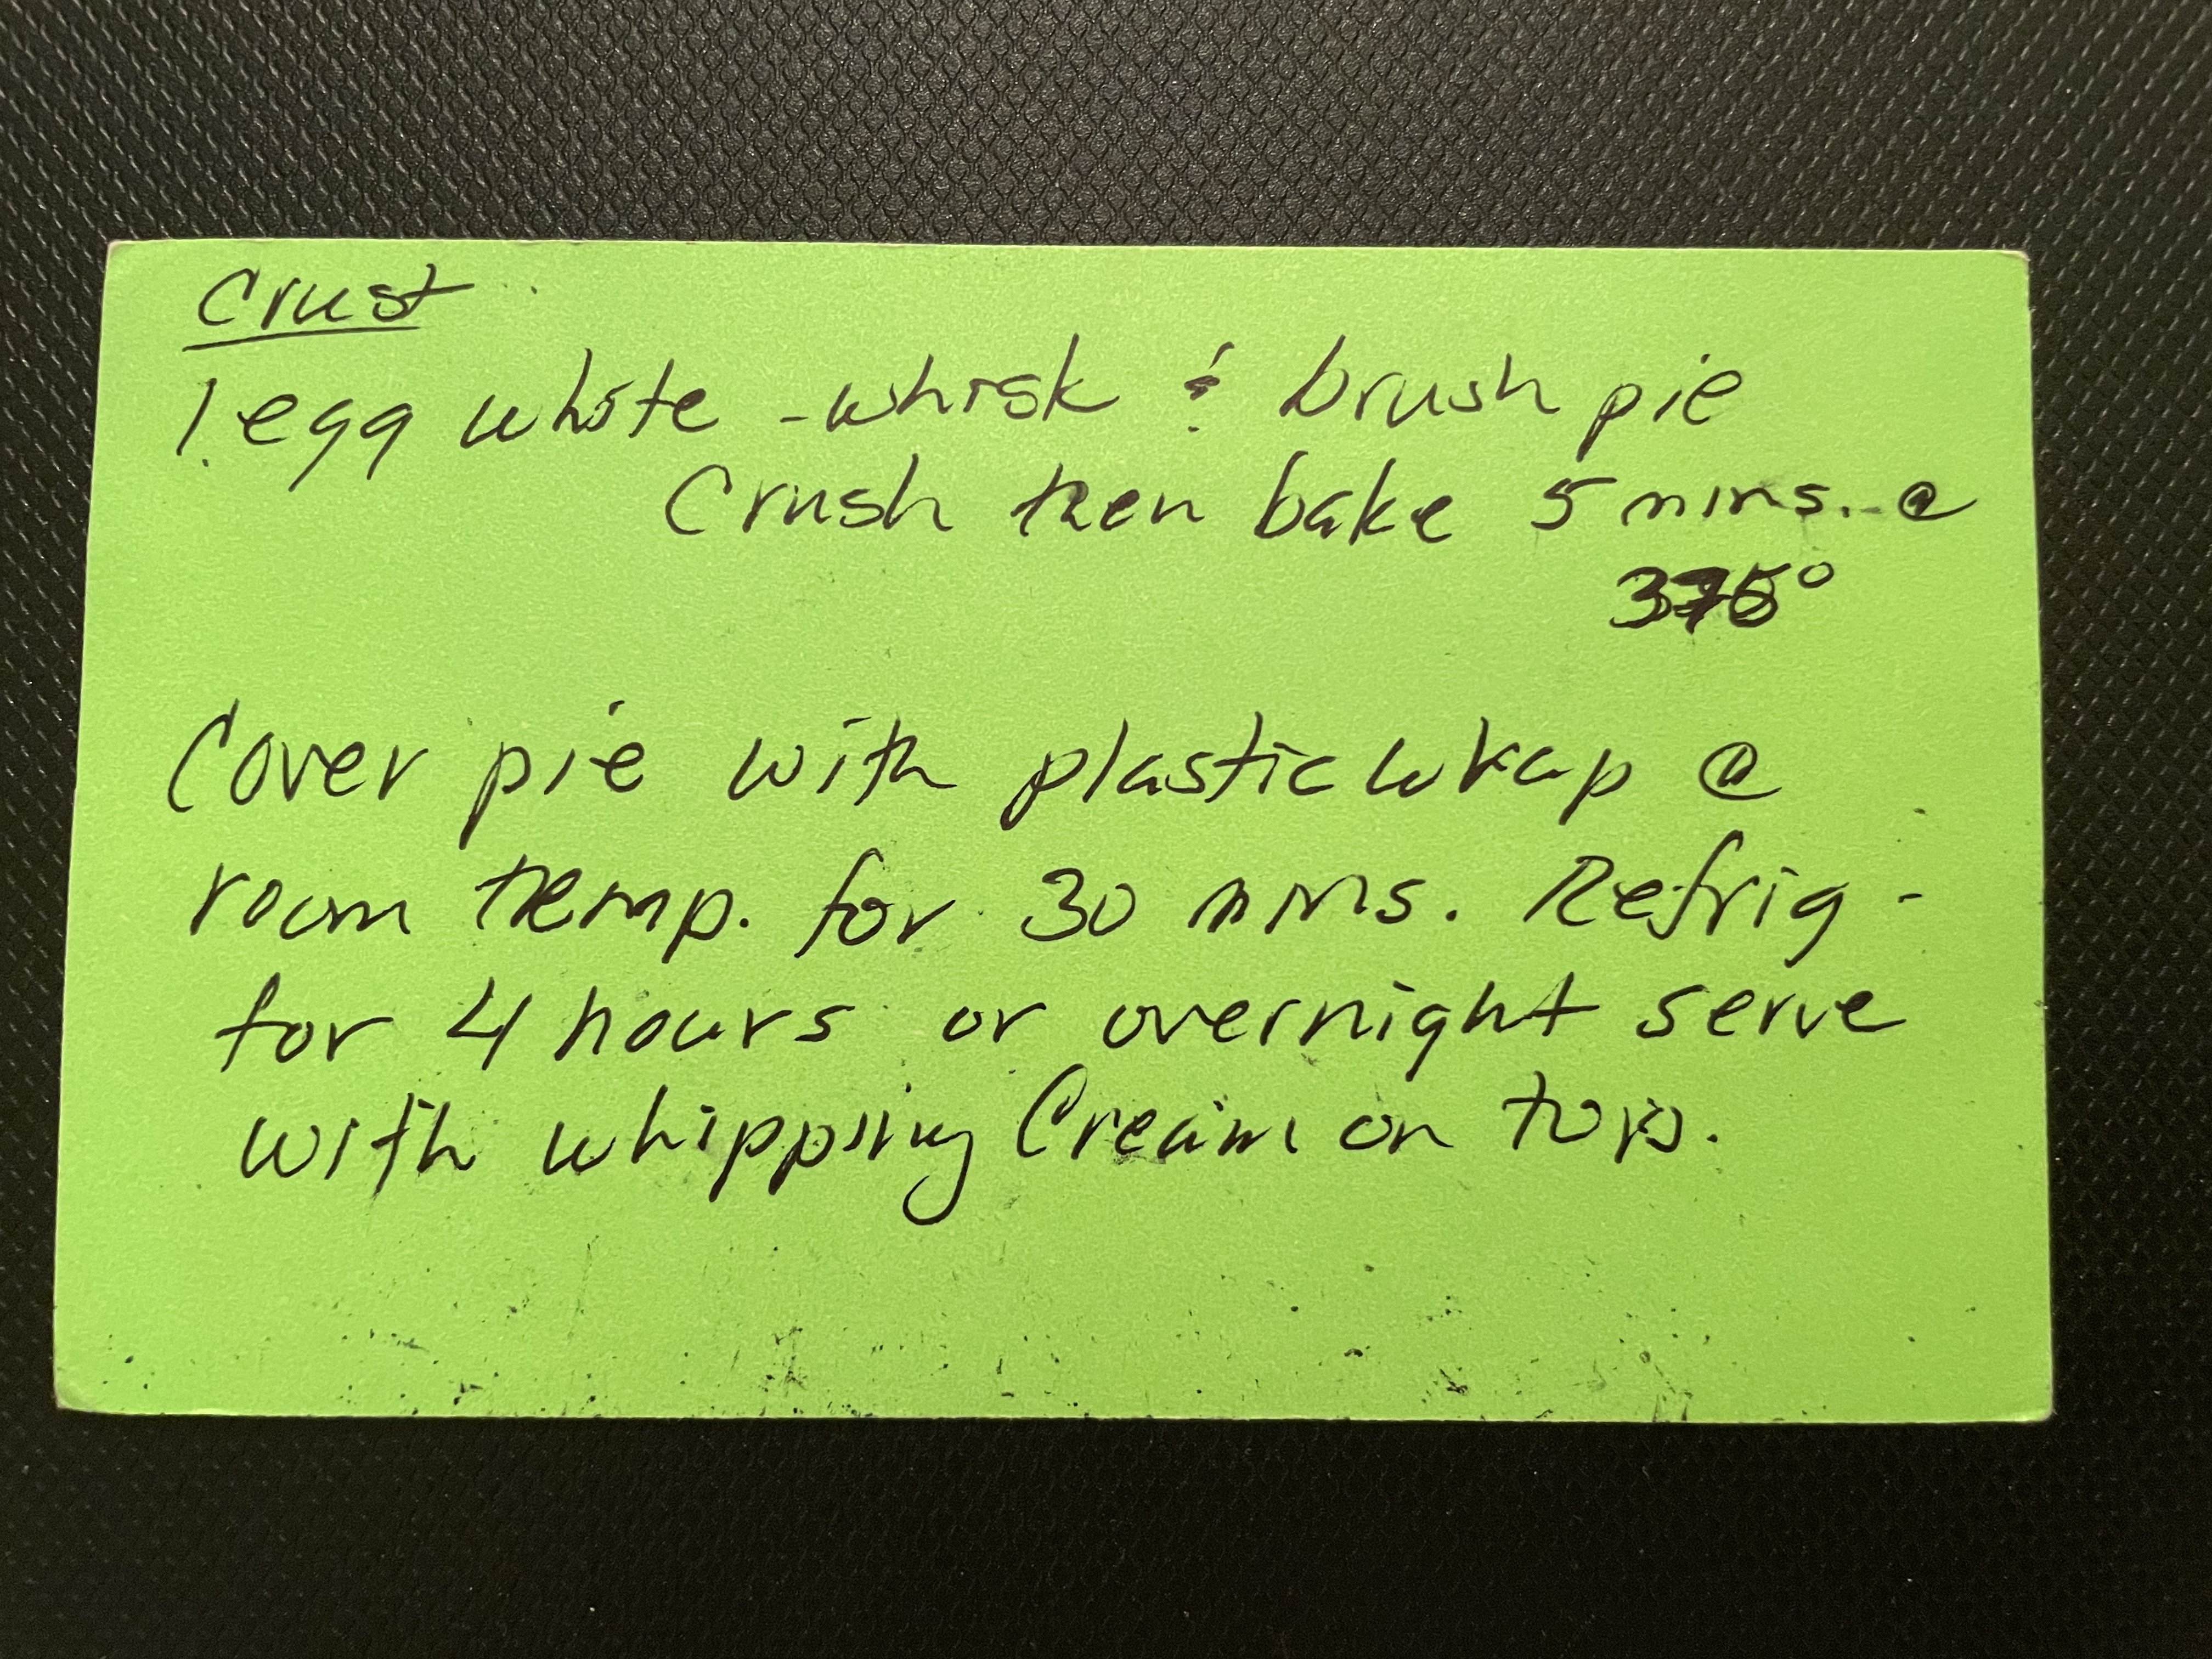 Crust
1 egg white - whisk & brush pie
Crush then bake 5 mins. @
375°
Cover pie with plastic wrap @
room temp. for 30 mins. Refrig -
for 4 hours or overnight serve
with whipping Cream on top.